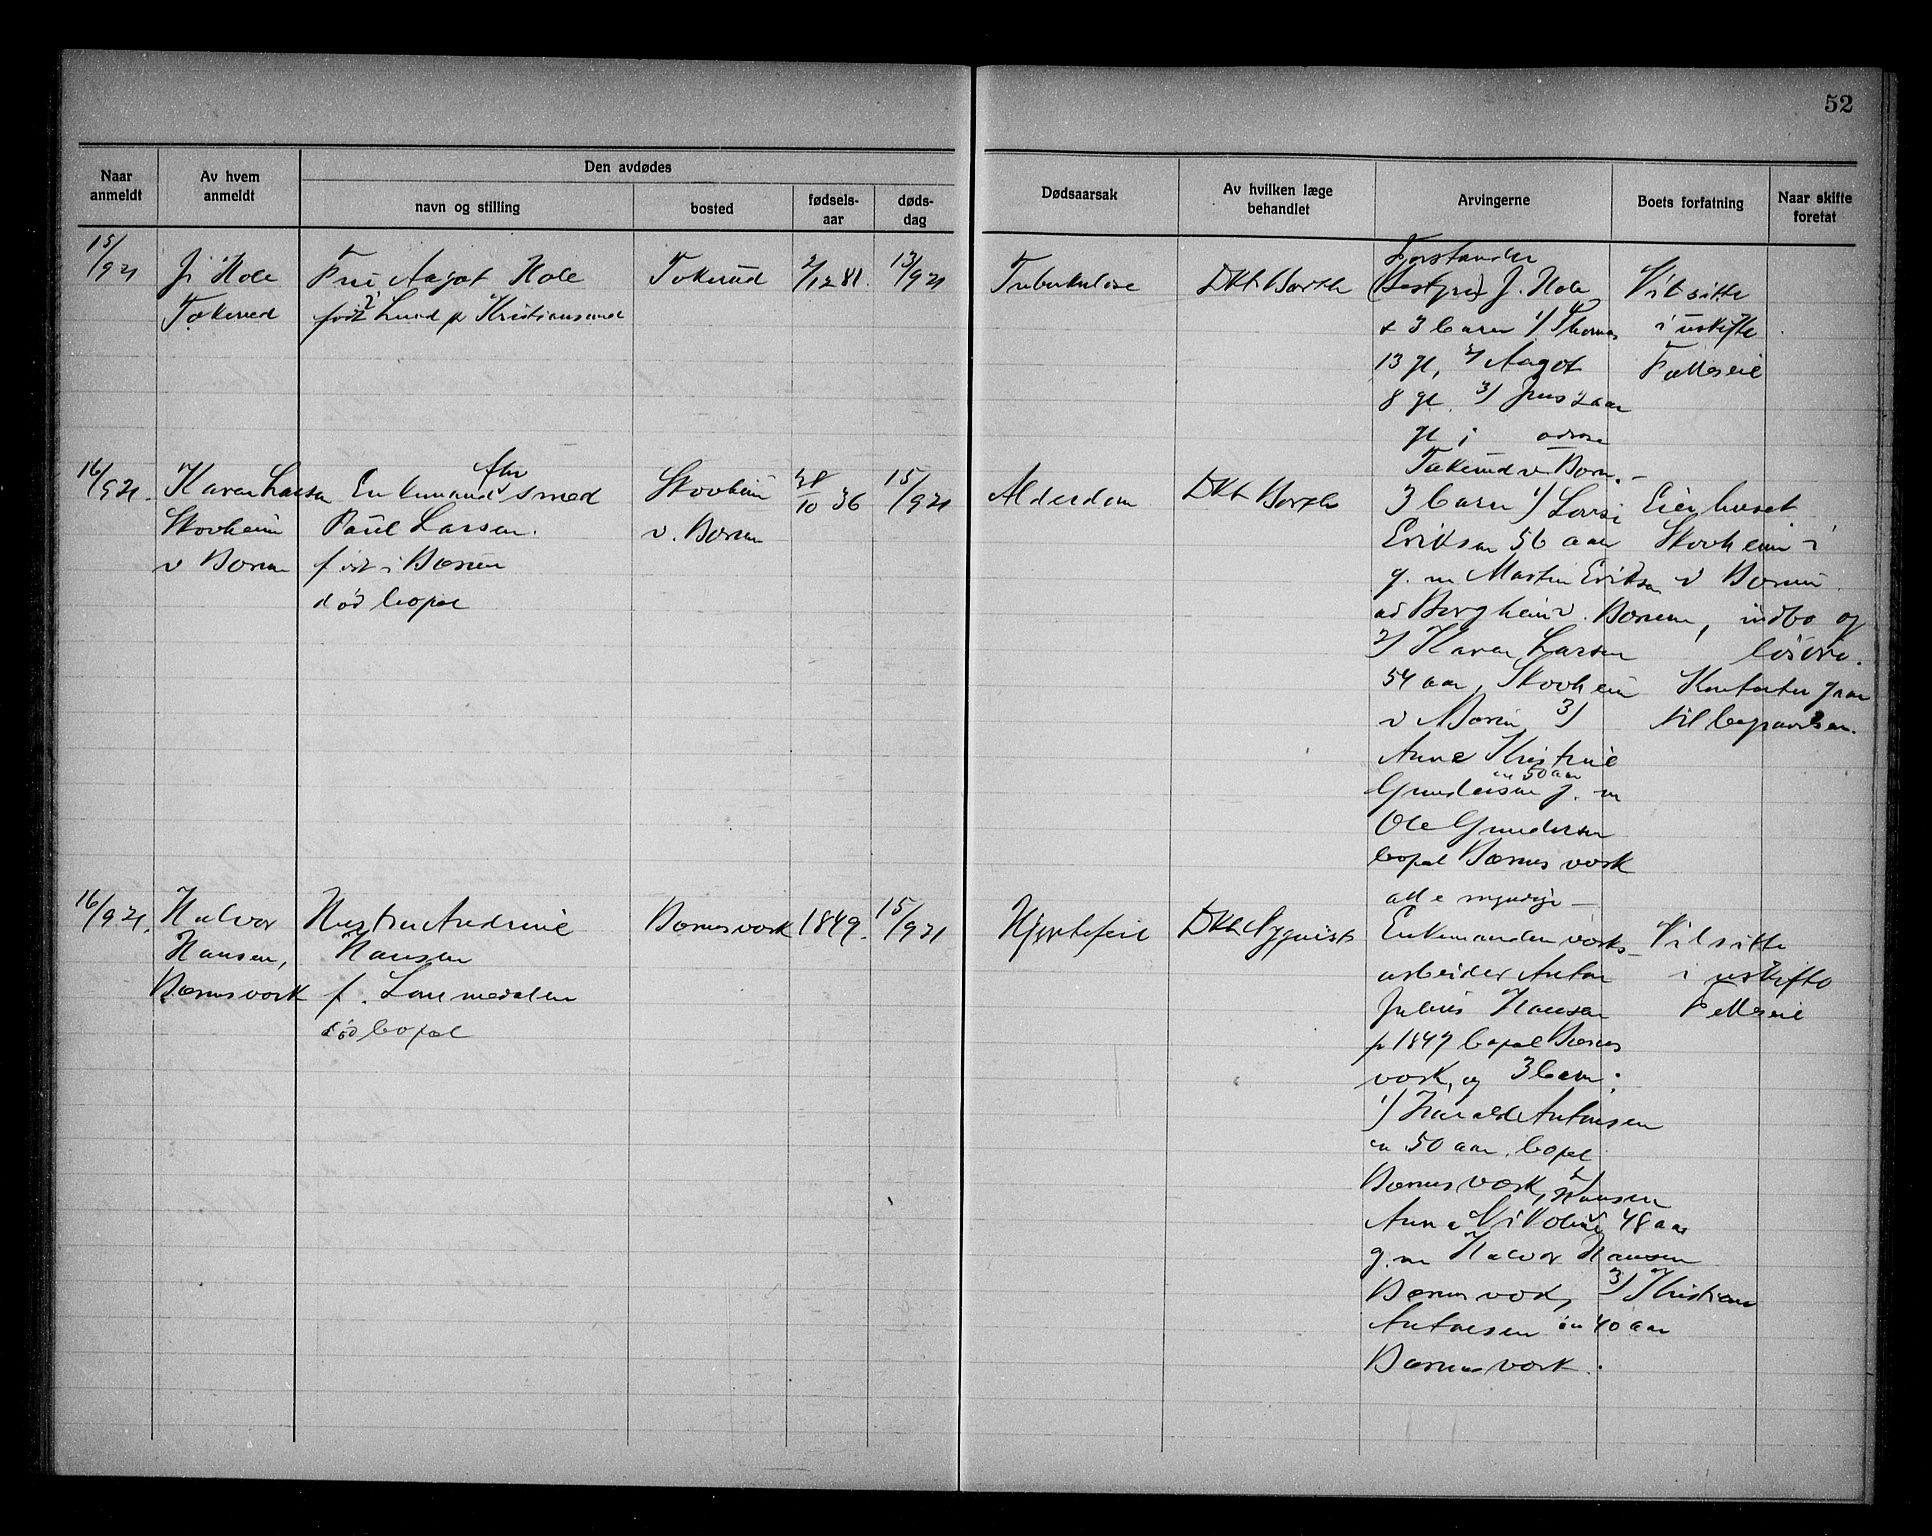 52
Naar anmeldt
Av hvem anmeldt
Den avdødes
navn og stilling
bosted
fødselsaar
dødsdag
Dødsaarsak
Av hvilken læge behandlet
Arvingerne
Boets forfatning
Naar skifte foretat
15/9 21
J. Hole
Tokerud
Frue Aagot Hole
født Lund p Kristiansand
Tokerud
2/12 81.
13/9 21
Tuberkulose
Dkt. Barth
Forstander
(Bestyrer) J. Hole
& 3 barn 1/ Thomas
13 gl, 2/ Aagot
8 gl. 3/ Jens 2 aar
gl
Tokerud v Bærum.
Vil sitte
i uskifte
Fælleseie
16/9 21.
Karen Larsen
Skovheim
v Bærum
fhv
Enkemand smed
Paul Larsen.
født i Bærum
død bopæl
Skovheim
v. Bærum
28/10 36
15/9 21
Alderdom
Dkt Barth
3 barn 1/ Lovise
Eriksen 56 aar
g. m Martin Eriksen
Bergheim v. Bærum,
2) Karen Larsen
54 aar, Skovheim
v Bærum 3)
Anne Kristine
Gundersen 50 aar g. m
Ole Gundersen
bopæl Bærums verk
alle myndige
Eier huset
Skovheim i
v Bærum
indbo og
løsøre.
Kontanter gaar
til begravelsen.
16/9 21.
Halvor
Hansen,
Bærums verk
Hustru Andrine
Hansen
f. Lommedalen
død bopæl
Bærums verk
1849.
15/9 21
Hjertefeil
Dkt. Nyquist
Enkemanden verks
arbeider Anton
Julius Hansen
f 1847 bopæl Bærums
verk, og 3 barn:
1) Harald Antonsen
50 aar, bopæl
Bærums verk, 2/ Hansen
Anna Nikoline 48 aar
g. m Halvor Hansen
Bærums verk, 3) Kristian
Antonsen 40 aar
Bærums verk.
Vil sitte
i uskifte
Fælleseie